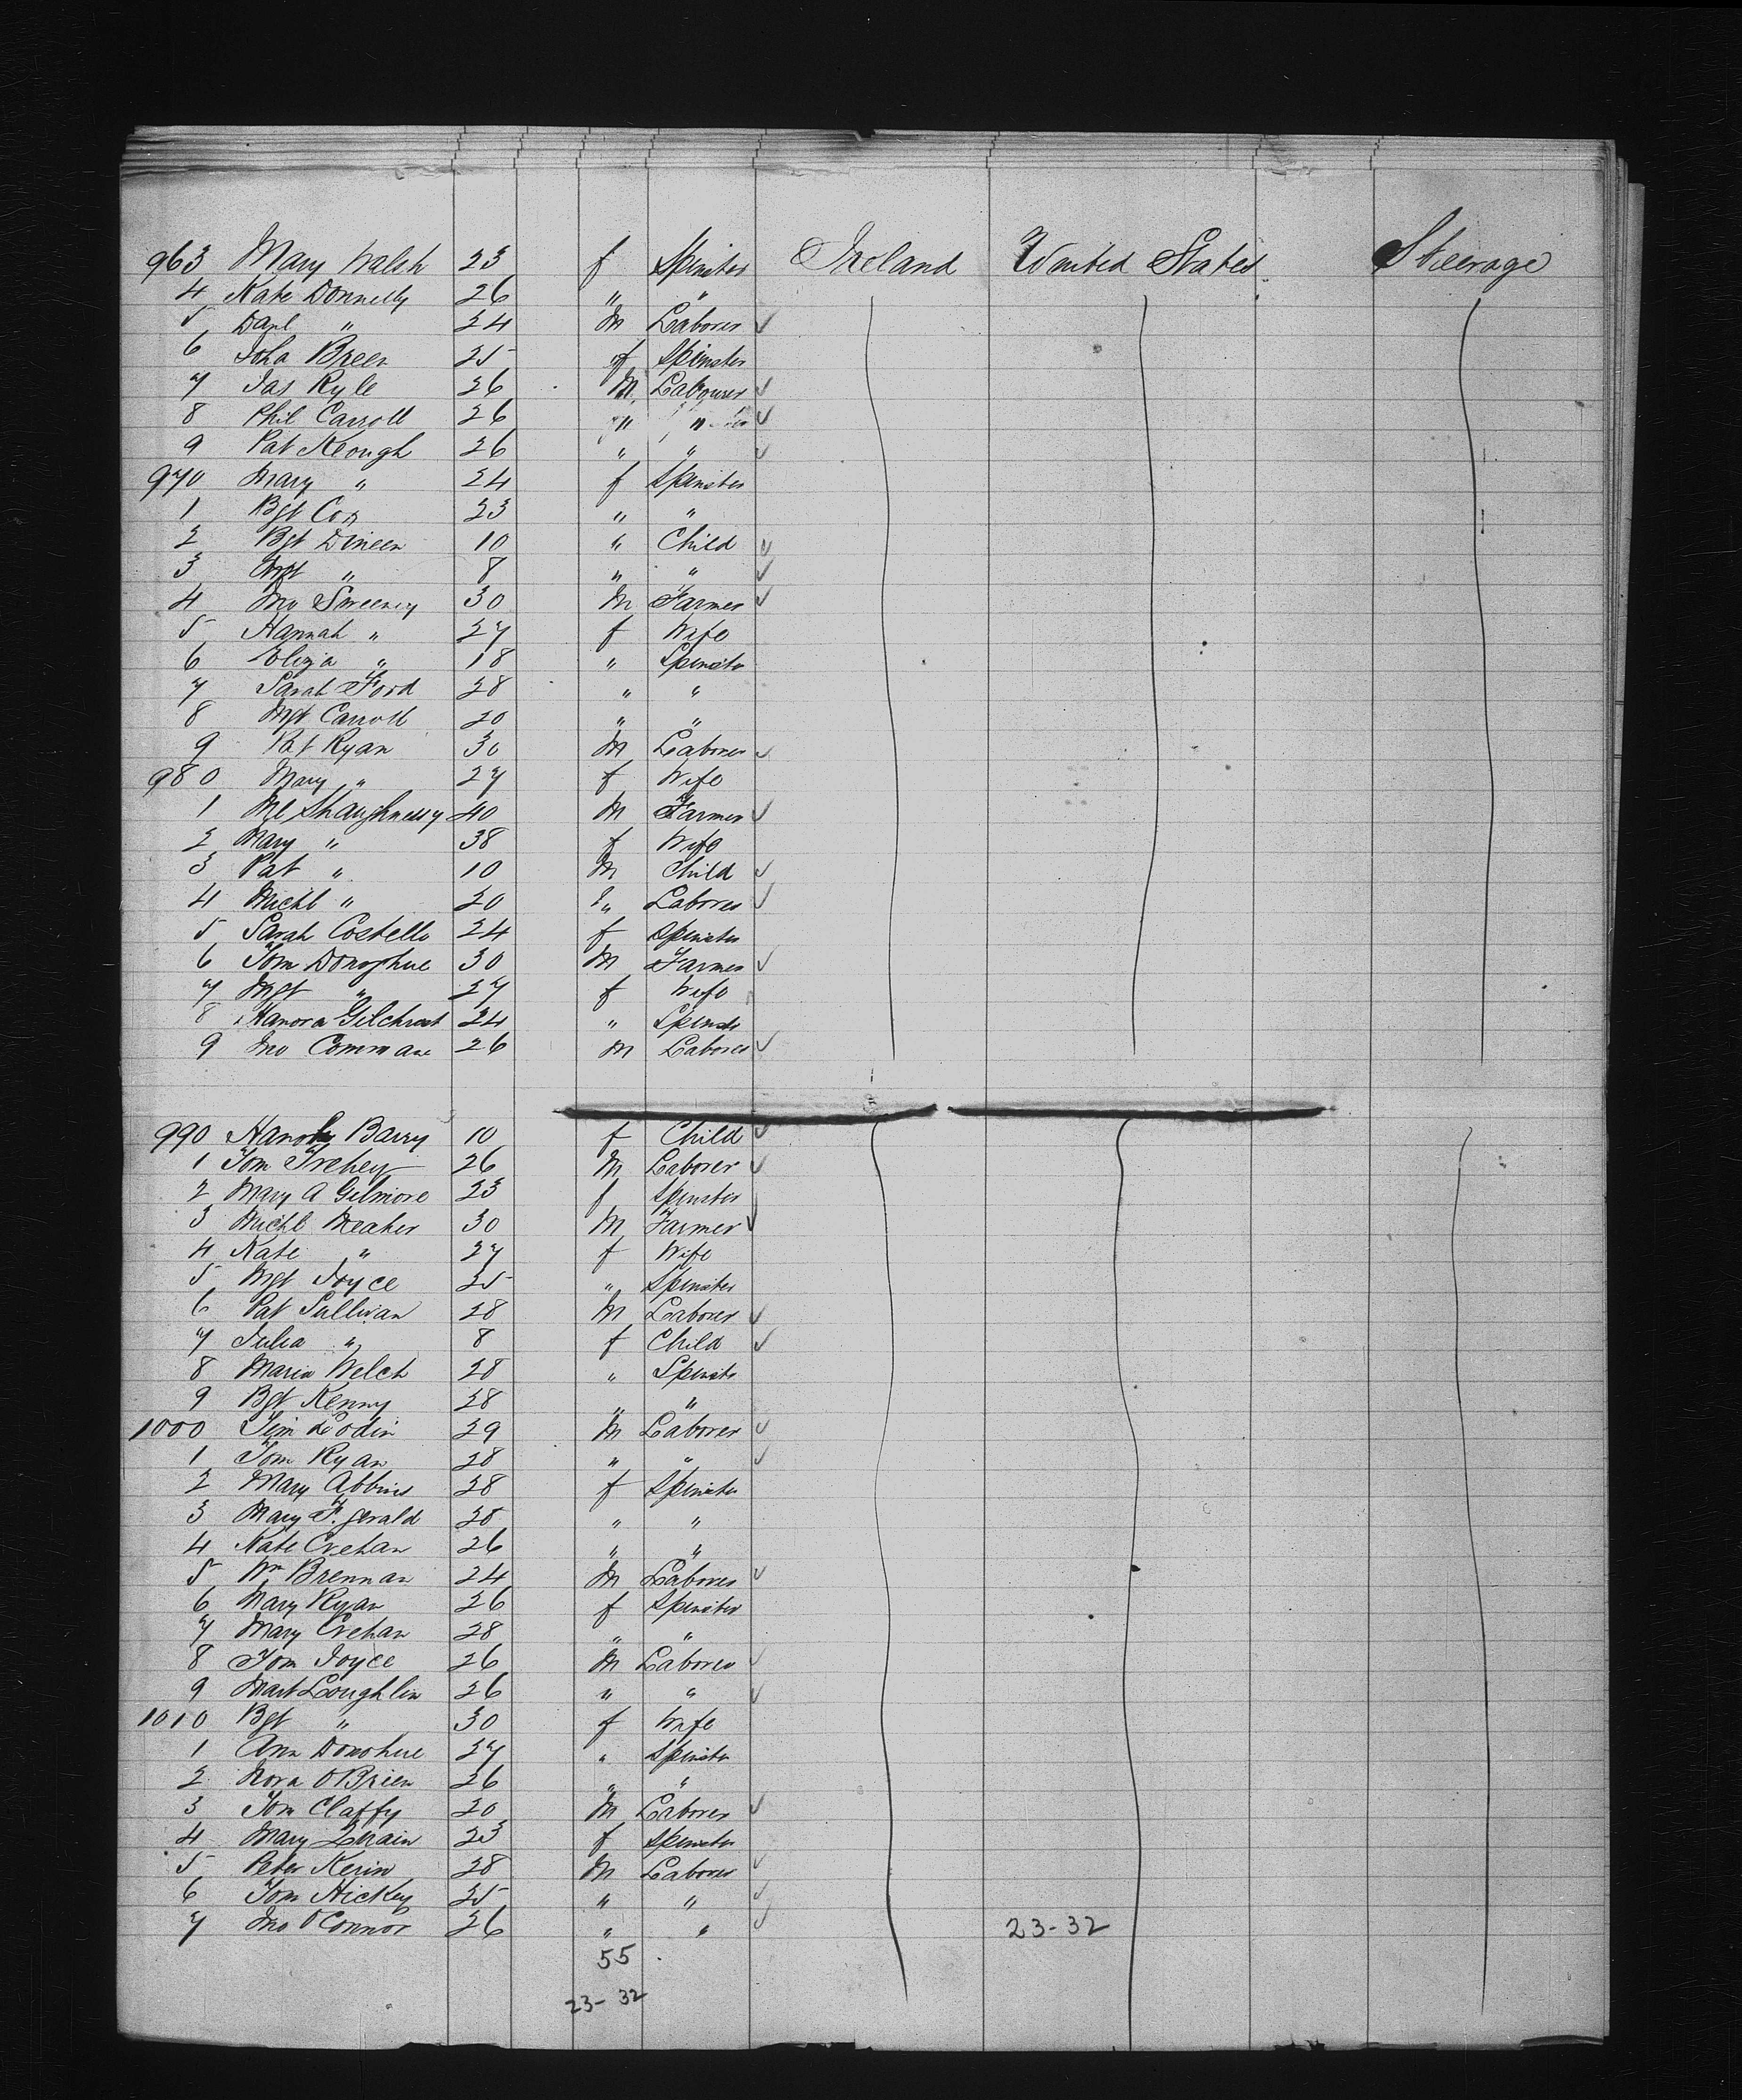 963 Mary Walsh 23 f Spinster Ireland United States Steerage
4 Kate Donnelly 26 " "
5 Danl " 24 M Laborer ✓
6 Joha Breen 25 f Spinster
7 Jas Kyle 26 M Labourer ✓
8 Phil Carroll 26 " " ✓
9 Pat Keough 26 " " ✓
970 Mary " 24 f Spinster
1 Bgt Cox 23 " "
2 Bgt Dineen 10 " Child ✓
3 Mgt " 8 " " ✓
4 Jno Sweeney 30 M Farmer ✓
5 Hannah " 27 f Wife
6 Eliza " 18 " Spinster
7 Sarah Ford 28 " "
8 Mgt Carroll 20 " "
9 Pat Ryan 30 M Laborer ✓
980 Mary " 27 f Wife
1 Ml Shaughnessy 40 M Farmer ✓
2 Mary " 38 f Wife
3 Pat " 10 M Child ✓
4 Michl " 20 " Laborer ✓
5 Sarah Costello 24 f Spinster
6 Tom Donoghue 30 M Farmer ✓
7 Mgt " 27 f Wife
8 Hanora Gilchrist 24 " Spinster
9 Jno Commane 26 M Laborer ✓
990 Barry 10 f Child ✓
1 Tom Trehey 26 M Laborer ✓
2 Mary A Gilmore 23 f Spinster
3 Michl Meaher 30 M Farmer ✓
4 Kate " 27 f Wife
5 Mgt Joyce 25 " Spinster
6 Pat Sullivan 28 M Laborer ✓
7 Julia " 8 f Child ✓
8 Maria Welch 28 " Spinster
9 Bgt Kenny 28 " "
1000 Tim Lodin 29 M Laborer ✓
1 Tom Ryan 28 " " ✓
2 Mary Abbins 28 f Spinster
3 Mary F.gerald 28 " "
4 Kate Crehan 26 " "
5 Wm Brennan 24 M Laborer ✓
6 Mary Ryan 26 f Spinster
7 Mary Crehan 28 " "
8 Tom Joyce 26 M Laborer ✓
9 Mart Loughlin 26 " " ✓
1010 Bgt " 30 f Wife
1 Ann Donohue 27 " Spinster
2 Nora O'Brien 26 " "
3 Tom Claffy 20 M Laborer ✓
4 Mary 23 f Spinster
5 Peter Kerin 28 M Laborer ✓
6 Tom Hickey 25 " " ✓
7 Jno O'Connor 26 " " ✓ 23-32
55
23-32